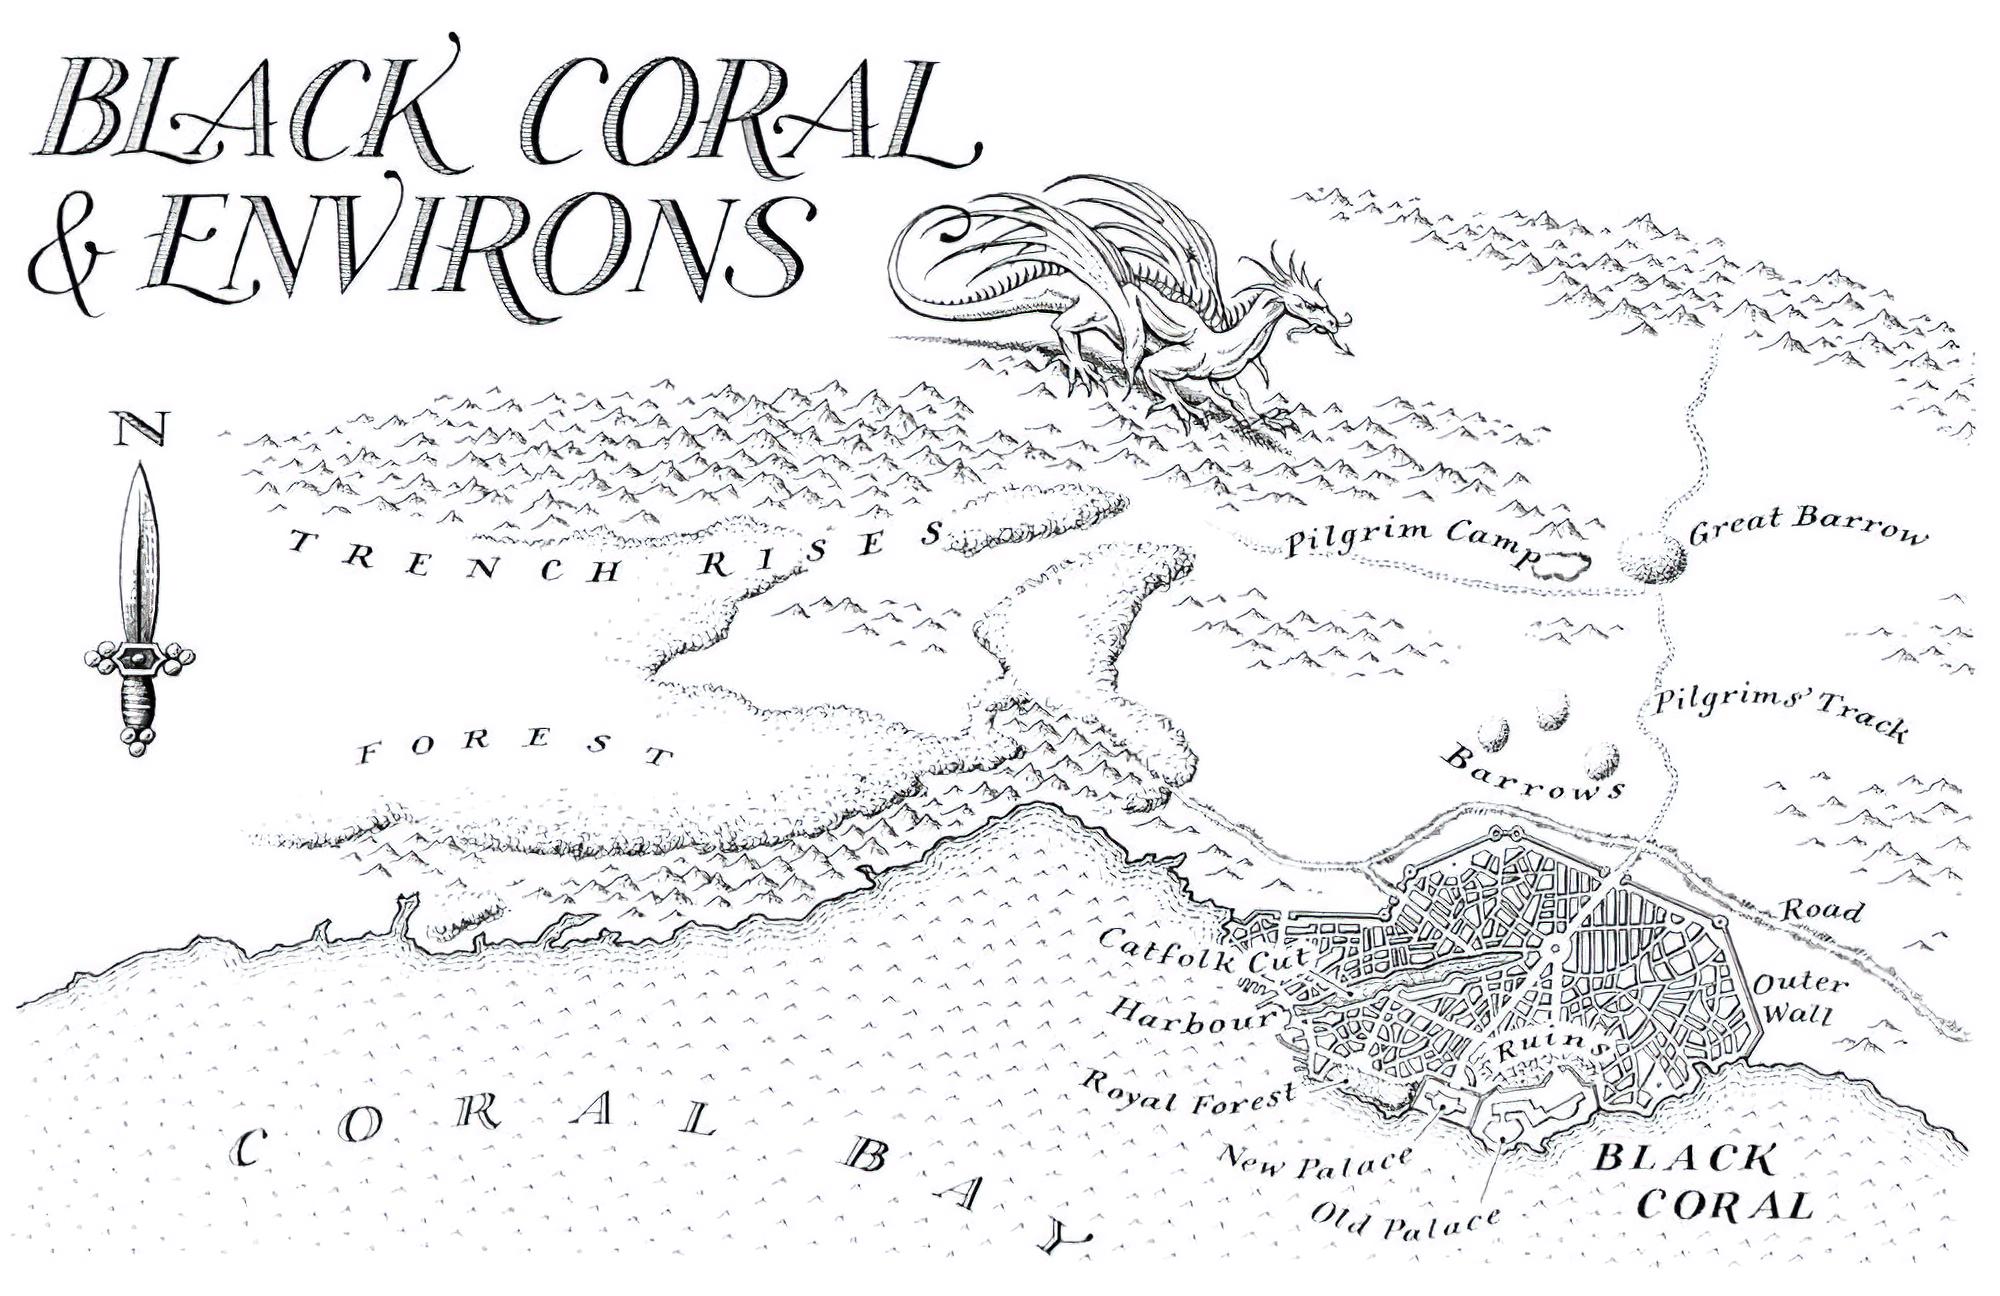 BLACK CORAL
& ENVIRONS
N
TRENCH RISES
Pilgrim Camp
Great Barrow
Pilgrims' Track
FOREST
Barrows
Road
Catfolk Cut
Outer
Wall
Harbour
Ruins
Royal Forest
CORAL BAY
New Palace
Old Palace
BLACK
CORAL